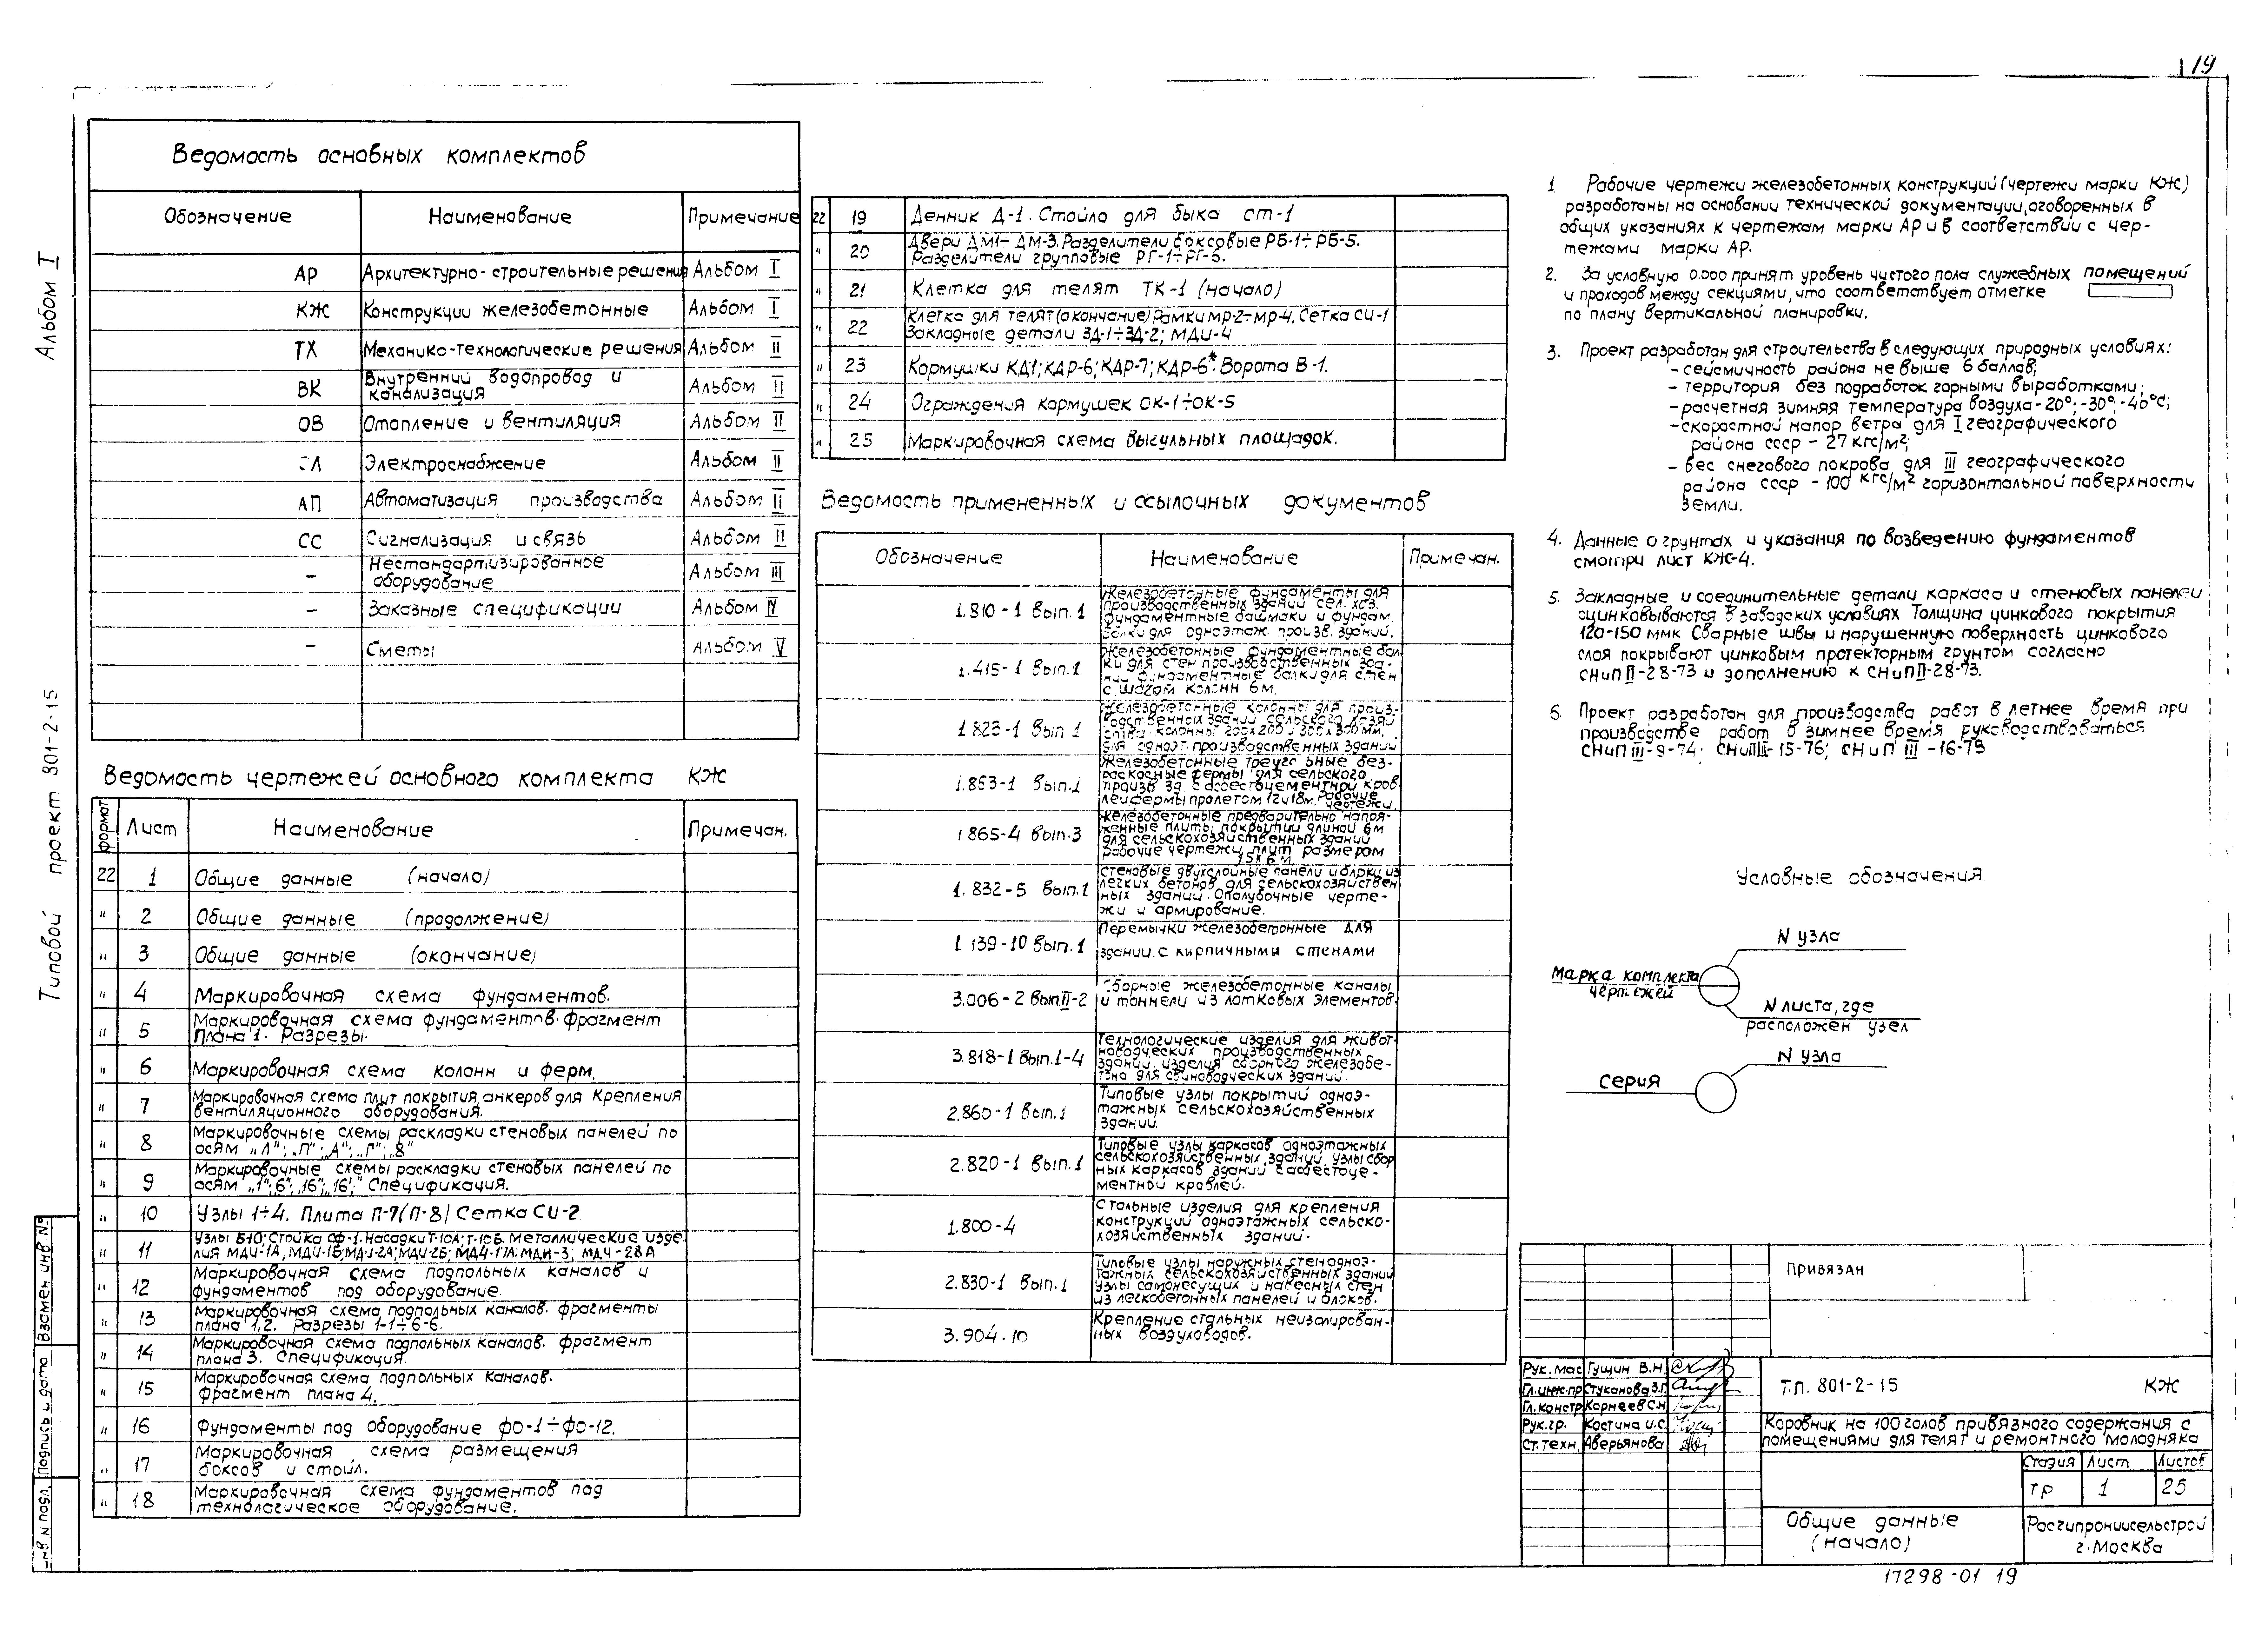 19
Альбом I
Типовой проект 801-2-15
Взамен инв №
Подпись и дата
инв N подл.
Ведомость основных комплектов
Обозначение Наименование Примечание
АР Архитектурно-строительные решения Альбом I
КЖ Конструкции железобетонные Альбом I
ТХ Механико-технологические решения Альбом II
ВК Внутренний водопровод и
канализация Альбом II
ОВ Отопление и вентиляция Альбом II
ЭЛ Электроснабжение Альбом II
АП Автоматизация производства Альбом II
СС Сигнализация и связь Альбом II
– Нестандартизированное
оборудование Альбом III
– Заказные спецификации Альбом IV
– Сметы Альбом V
Ведомость чертежей основного комплекта КЖ
формат Лист Наименование Примечан.
22 1 Общие данные (начало)
" 2 Общие данные (продолжение)
" 3 Общие данные (окончание)
" 4 Маркировочная схема фундаментов.
" 5 Маркировочная схема фундаментов. Фрагмент
плана 1. Разрезы.
" 6 Маркировочная схема колонн и ферм.
" 7 Маркировочная схема плит покрытия, анкеров для крепления
вентиляционного оборудования.
" 8 Маркировочные схемы раскладки стеновых панелей по
осям „Л"; „П"; „А"; „Г"; „8"
" 9 Маркировочные схемы раскладки стеновых панелей по
осям „1"; „6"; „16"; „16'" Спецификация.
" 10 Узлы 1÷4. Плита П-7(П-8) Сетка СИ-2
" 11 Узлы 5÷10; Стойка СФ-1. Насадки Т-10А; Т-10Б. Металлические изде-
лия МДИ-1А, МДИ-1Б; МДИ-2А; МДИ-2Б; МДИ-17А; МДИ-3; МДИ-28А
" 12 Маркировочная схема подпольных каналов и
фундаментов под оборудование.
" 13 Маркировочная схема подпольных каналов. Фрагменты
плана 1,2. Разрезы 1-1÷6-6.
" 14 Маркировочная схема подпольных каналов. Фрагмент
плана 3. Спецификация.
" 15 Маркировочная схема подпольных каналов.
Фрагмент плана 4.
" 16 Фундаменты под оборудование ФО-1÷ФО-12.
" 17 Маркировочная схема размещения
боксов и стойл.
" 18 Маркировочная схема фундаментов под
технологическое оборудование.
22 19 Денник Д-1. Стойло для быка СТ-1
" 20 Двери ДМ1÷ДМ-3. Разделители боксовые РБ-1÷РБ-5.
Разделители групповые РГ-1÷РГ-5.
" 21 Клетка для телят ТК-1 (начало)
" 22 Клетка для телят (окончание) Рамки МР-2÷МР-4. Сетка СИ-1
Закладные детали ЗД-1÷ЗД-2; МДИ-4
" 23 Кормушки КД1; КДР-6; КДР-7; КДР-6*. Ворота В-1.
" 24 Ограждения кормушек ОК-1÷ОК-5
" 25 Маркировочная схема выгульных площадок.
Ведомость примененных и ссылочных документов
Обозначение Наименование Примечан.
1.810-1 Вып.1 Железобетонные фундаменты для
производственных зданий сел. хоз.
Фундаментные башмаки и фундам.
балки для одноэтаж. произв. зданий.
1.415-1 Вып.1 Железобетонные фундаментные бал
ки для стен производственных зда-
ний. Фундаментные балки для стен
с шагом колонн 6м.
1.823-1 Вып.1 Железобетонные колонны для произ-
водственных зданий сельского хозяй
ства колонны 200х200 и 300х300мм.
для одноэт. производственных зданий
1.863-1 Вып.1 Железобетонные треуго ьные без-
раскосные фермы для сельского
произв. зд. с асбестоцементной кров
лей фермы пролетом 12 и 18м. Рабочие
чертежи.
1 865-4 Вып.3 Железобетонные предварительно напря-
женные плиты покрытий длиной 6м
для сельскохозяйственных зданий
рабочие чертежи плит размером
1,5х6 м.
1. 832-5 Вып.1 Стеновые двухслойные панели и блоки из
легких бетонов для сельскохозяйствен
ных зданий. Опалубочные черте-
жи и армирование.
1 139-10 Вып.1 Перемычки железобетонные для
зданий с кирпичными стенами
3.006-2 Вып II-2 Сборные железобетонные каналы
и тоннели из лотковых элементов.
3.818-1 Вып.1-4 Технологические изделия для живот-
новодческих производственных
зданий. изделия сборного железобе-
тона для свиноводческих зданий.
2.860-1 Вып.1 Типовые узлы покрытий одноэ-
тажных сельскохозяйственных
зданий.
2.820-1 Вып.1 Типовые узлы каркасов одноэтажных
сельскохозяйственных зданий. Узлы сбор
ных каркасов зданий с асбестоце-
ментной кровлей.
1.800-4 Стальные изделия для крепления
конструкций одноэтажных сельско-
хозяйственных зданий.
2.830-1 Вып.1 Типовые узлы наружных стен одноэ-
тажных сельскохозяйственных зданий
Узлы самонесущих и навесных стен
из легкобетонных панелей и блоков.
3.904.10 Крепление стальных неизолирован-
ных воздуховодов.
1. Рабочие чертежи железобетонных конструкций (чертежи марки КЖ)
разработаны на основании технической документации, оговоренных в
общих указаниях к чертежам марки АР и в соответствии с чер-
тежами марки АР.
2. За условную 0.000 принят уровень чистого пола служебных помещений
и проходов между секциями, что соответствует отметке
по плану вертикальной планировки.
3. Проект разработан для строительства в следующих природных условиях:
– сейсмичность района не выше 6 баллов;
– территория без подработок горными выработками;
– расчетная зимняя температура воздуха -20°; -30°; -40°С;
– скоростной напор ветра для I географического
района ссср – 27 кгс/м²;
– вес снегового покрова для III географического
района ссср – 100 кгс/м² горизонтальной поверхности
земли.
4. Данные о грунтах и указания по возведению фундаментов
смотри лист КЖ-4.
5. Закладные и соединительные детали каркаса и стеновых панелей
оцинковываются в заводских условиях Толщина цинкового покрытия
120-150 мк Сварные швы и нарушенную поверхность цинкового
слоя покрывают цинковым протекторным грунтом согласно
СНиП II-28-73 и дополнению к СНиП II-28-73.
6. Проект разработан для производства работ в летнее время при
производстве работ в зимнее время руководствоваться
СНиП III-9-74; СНиП III-15-76; СНиП III-16-73
Условные обозначения
N узла
Марка комплекта
чертежей
N листа, где
расположен узел
N узла
серия
Привязан
Рук. мас Гущин В.Н.
Гл. инж. пр Стуканова З.Г.
Гл. констр Корнеев С.Н
Рук. гр. Костина И.С.
Ст. техн. Аверьянова
Т.П. 801-2-15 КЖ
Коровник на 100 голов привязного содержания с
помещениями для телят и ремонтного молодняка
Стадия Лист Листов
ТР 1 25
Общие данные
(начало)
Росгипрониисельстрой
г. Москва
17298-01 19